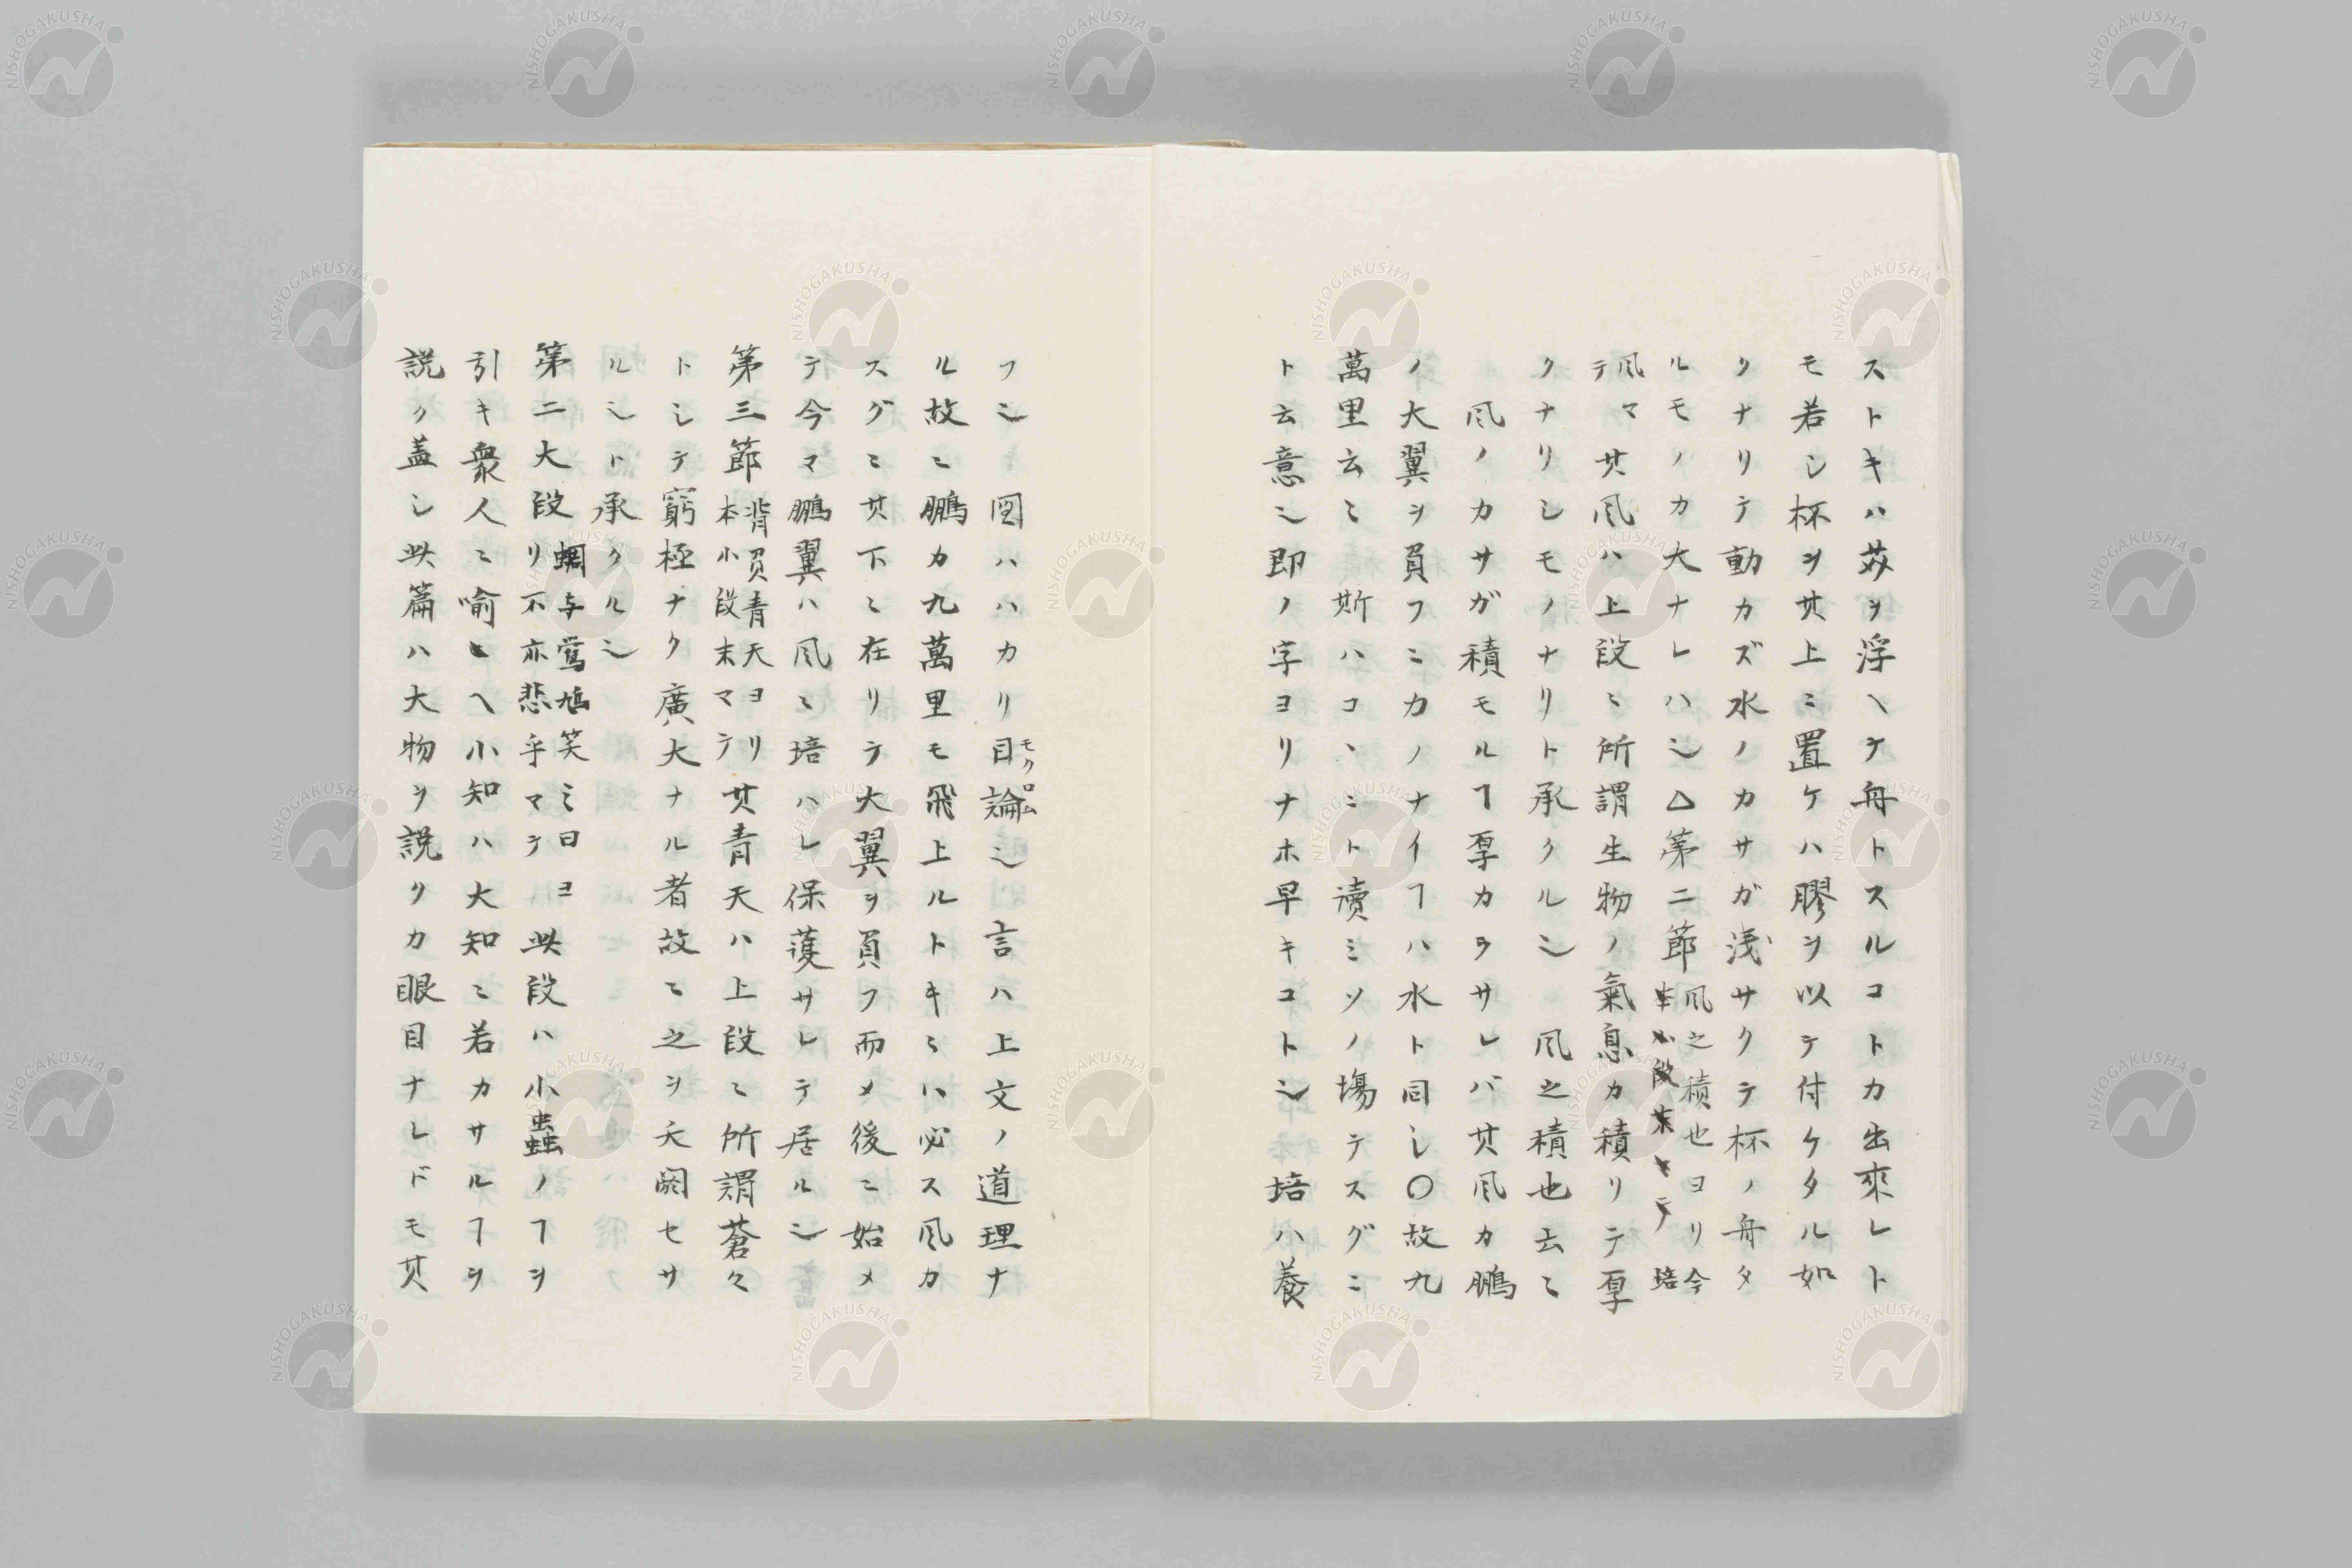 ストキハ芥ヲ浮ヘテ舟トスルコトカ出來レト
モ若シ杯ヲ其上ミ置ケハ膠ヲ以テ付ケタル如
クナリテ動カズ水ノカサガ浅サクテ杯ノ舟タ
ルモノカ大ナレハ也△第二節風之積也ヨリ今培
風マテ其風ハ上段ミ所謂生物ノ氣息カ積リテ厚
クナリシモノナリト承クル也 風之積也云ミ
風ノカサガ積モルヿ厚カラサレバ其風カ鵬
ノ大翼ヲ負フニカノナイヿハ水ト同シ〇故九
萬里云ミ 斯ハコヽニト讀ミソノ塲テスグニ
ト云意也即ノ字ヨリナホ早キコト也 培ハ養
フ也 図ハハカリ目論也 言ハ上文ノ道理ナ
モクロム
ル故ミ鵬カ九萬里モ飛上ルトキミハ必ス風カ
スグミ其下ミ在リテ大翼ヲ負フ而メ後ミ始メ
テ今マ鵬翼ハ風ミ培ハレ保護サレテ居ル也
第三節背负青天ヨリ本小段末マテ其青天ハ上段ミ所謂蒼々
トシテ窮極ナク廣大ナル者故ミ之ヲ夭閼セサ
ル也ト承クル也
第二大段蜩与鴬鳩笑ミ曰ヨリ不亦悲乎マテ此段ハ小蟲ノヿヲ
引キ衆人ミ喩ヘ小知ハ大知ミ若カサルヿヲ
説ク蓋シ此篇ハ大物ヲ説クカ眼目ナレドモ其
NISHOGAKUSHA